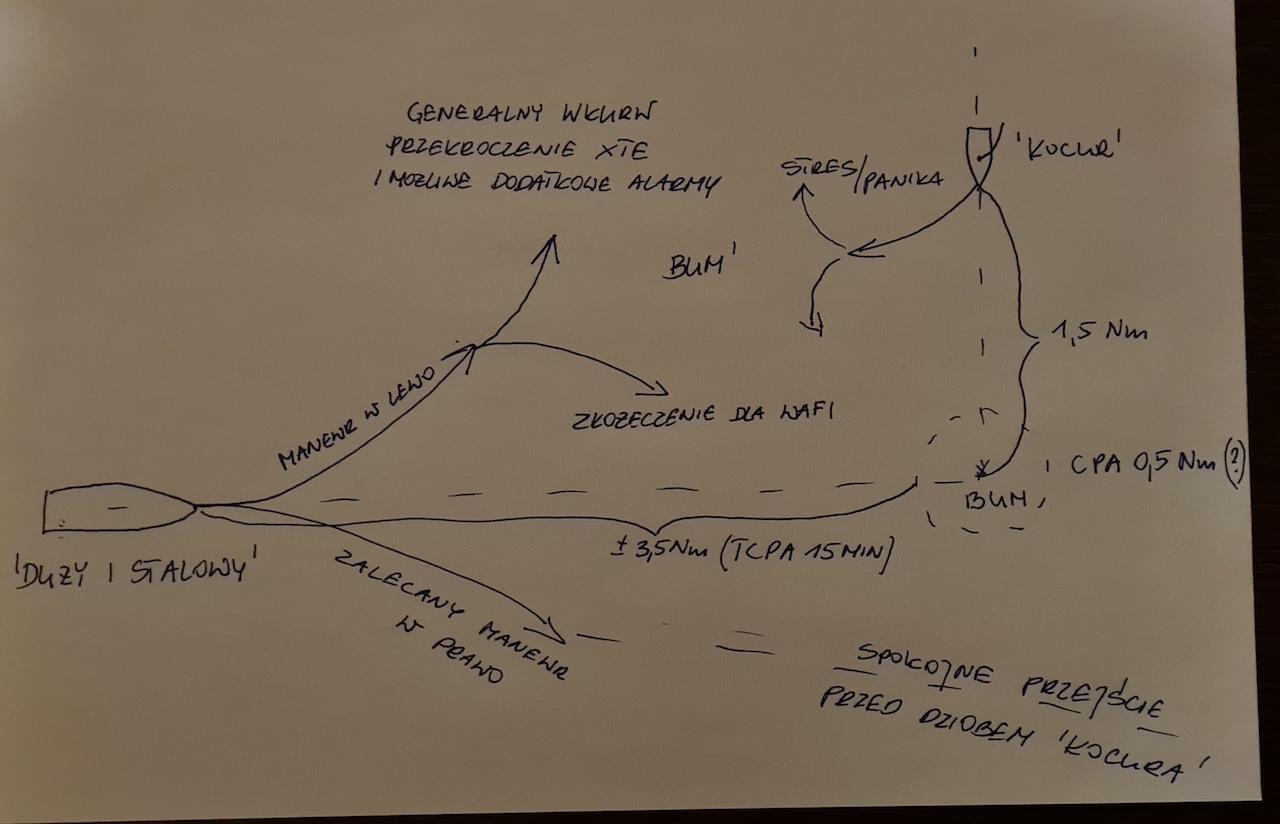 GENERALNY WKURW
PRZEKROCZENIE XTE
I MOŻLIWE DODATKOWE ALARMY
STRES/PANIKA
'KOCUR'
BUM'
1,5 Nm
MANEWR W LEWO
ZKOZECZENIE DLA WAFI
CPA 0,5 Nm (?)
BUM,
'DUŻY I STALOWY'
± 3,5 Nm (TCPA 15 MIN)
ZALECANY MANEWR
W PRAWO
SPOKOJNE PRZEJŚCIE
PRZED DZIOBEM 'KOCURA'